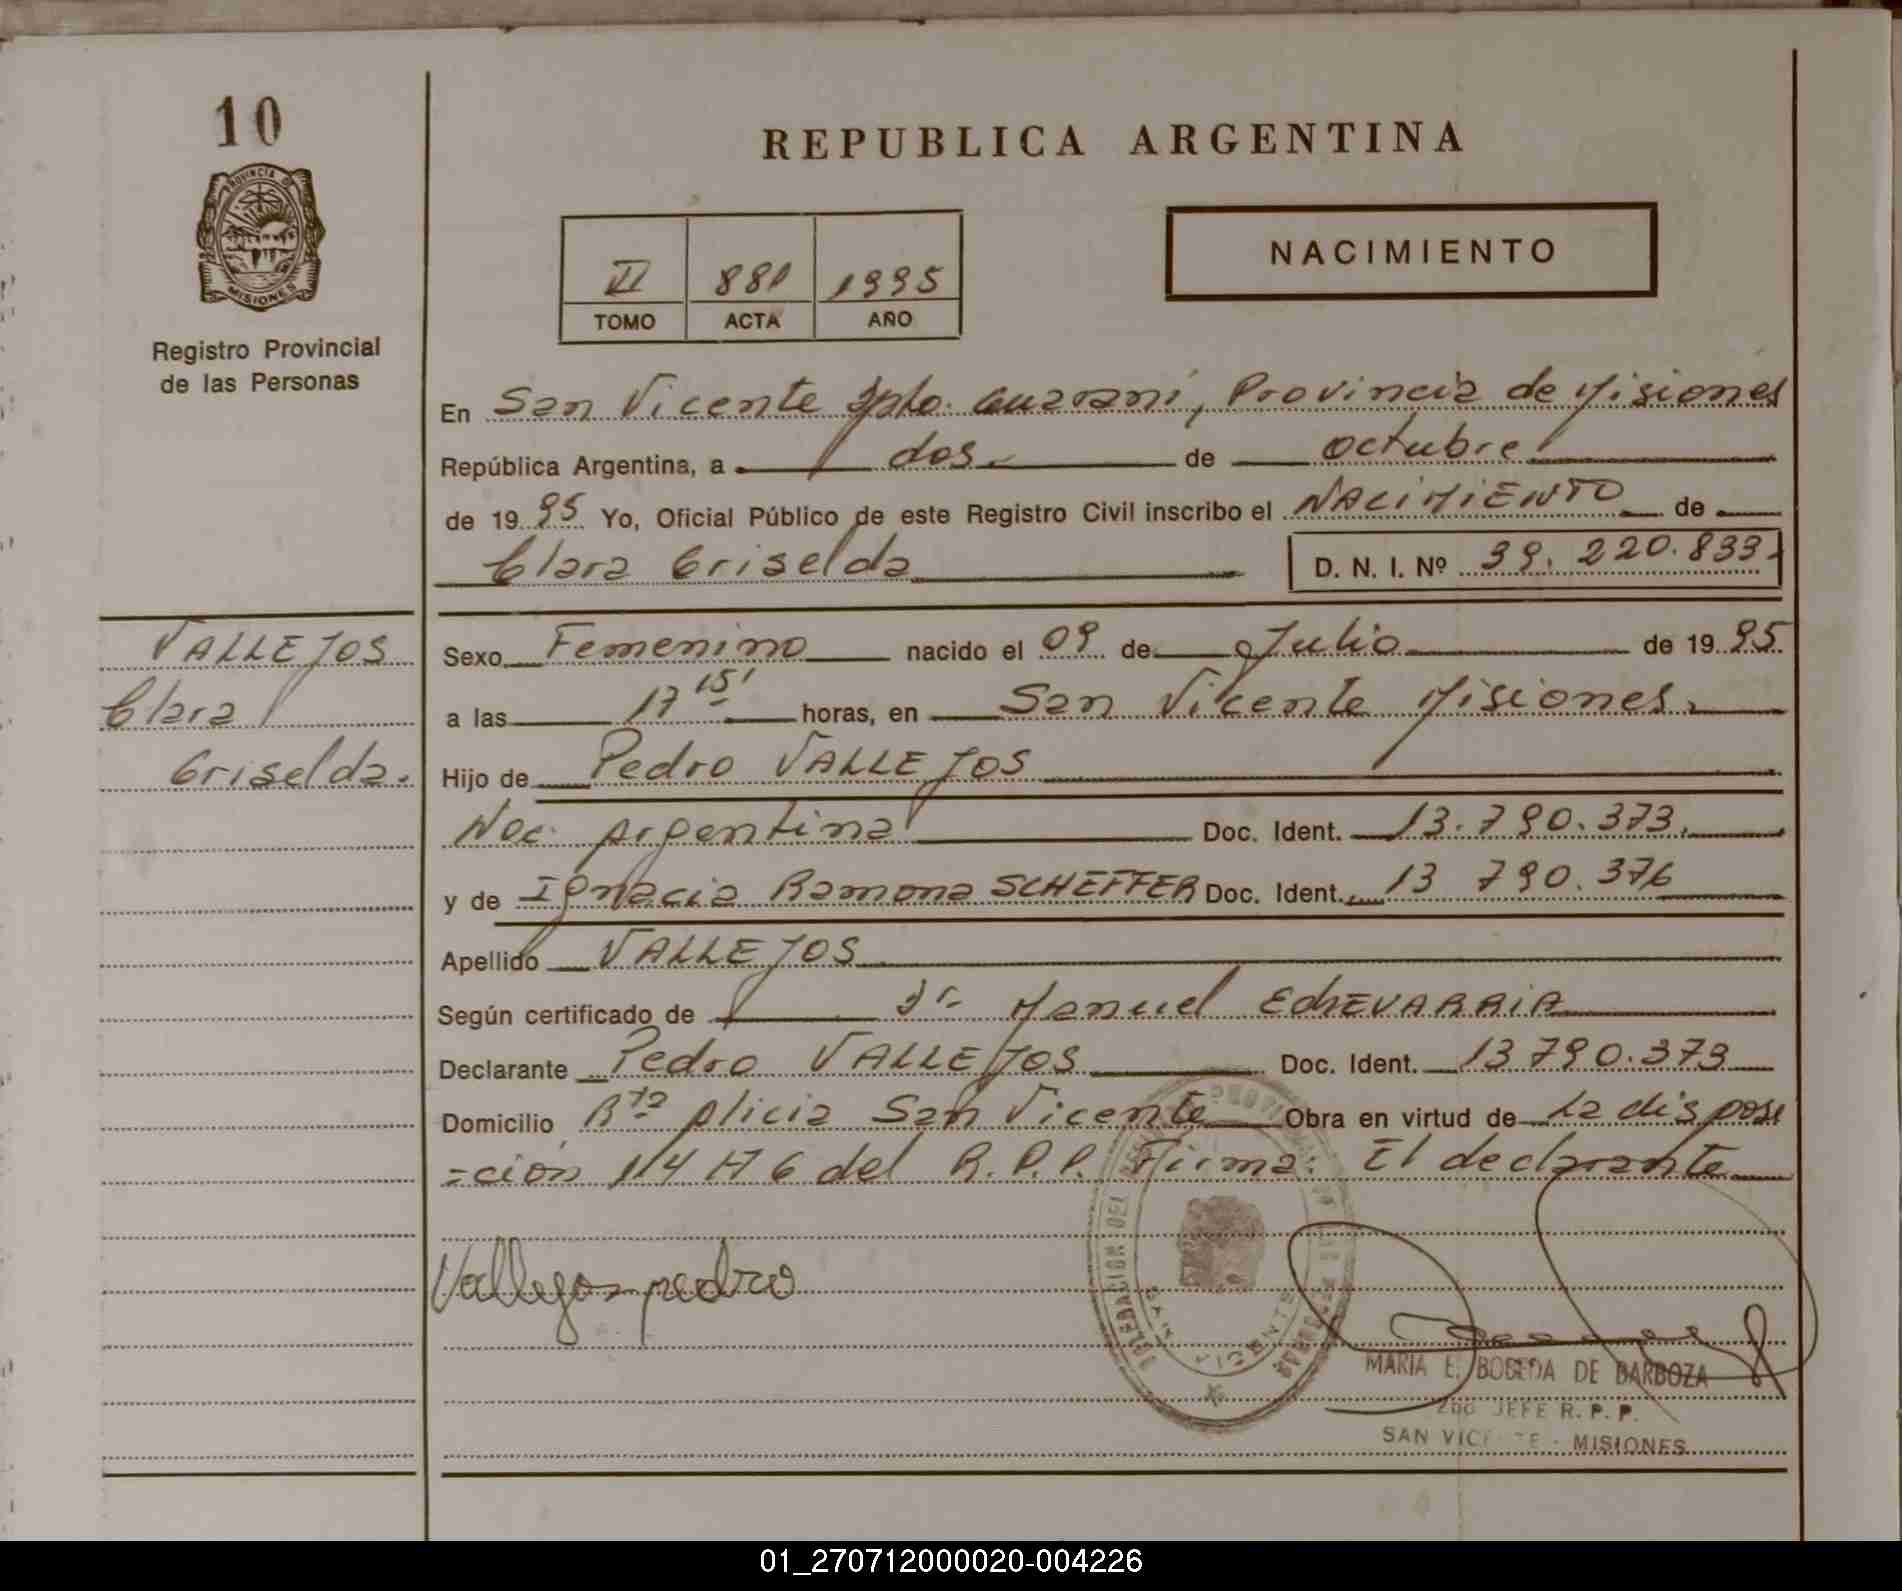 10
PROVINCIA DE
MISIONES
Registro Provincial
de las Personas
REPUBLICA ARGENTINA
NACIMIENTO
II 881 1995
TOMO ACTA AÑO
En San Vicente Dpto. Guarani, Provincia de Misiones
República Argentina, a dos de octubre
de 1995 Yo, Oficial Público de este Registro Civil inscribo el NACIMIENTO de
Clara Griselda D. N. I. Nº 39.220.833.
VALLEJOS
Clara
Griselda.
Sexo Femenino nacido el 09 de Julio de 1995
a las 17 15' horas, en San Vicente Misiones.
Hijo de Pedro VALLEJOS
Nac. Argentina Doc. Ident. 13.790.373.
y de Ignacia Ramona SCHEFFER Doc. Ident. 13 790.376
Apellido VALLEJOS
Según certificado de Dr Manuel EchEVARRiA
Declarante Pedro VALLEJOS Doc. Ident. 13 790.373
Domicilio Rta Alicia San Vicente Obra en virtud de la dispose
=ción 1476 del R.P.P. Firma: El declarante
Vallejos pedro
DELEGACION DEL
SAN VICENTE
MARIA E. BOBEDA DE BARBOZA
2do JEFE R. P. P.
SAN VICENTE - MISIONES
01_270712000020-004226